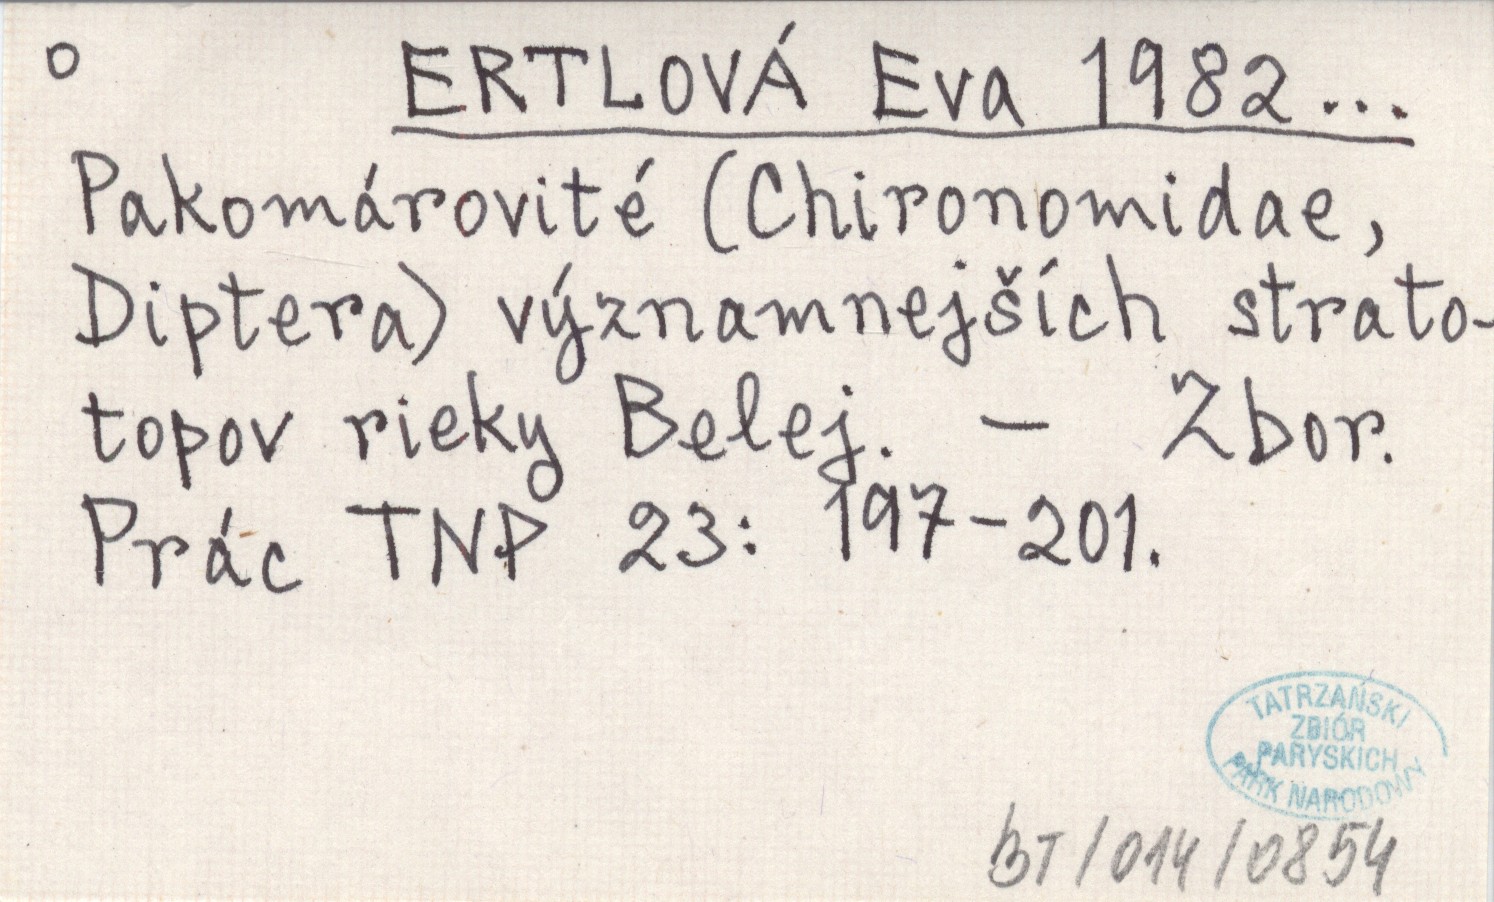 o ERTLOVÁ Eva 1982...
Pakomárovité (Chironomidae,
Diptera) významnejších strato-
topov rieky Belej. – Zbor.
Prác TNP 23: 197–201.
TATRZAŃSKI
ZBIÓR
PARYSKICH
PARK NARODOWY
BT/014/0854